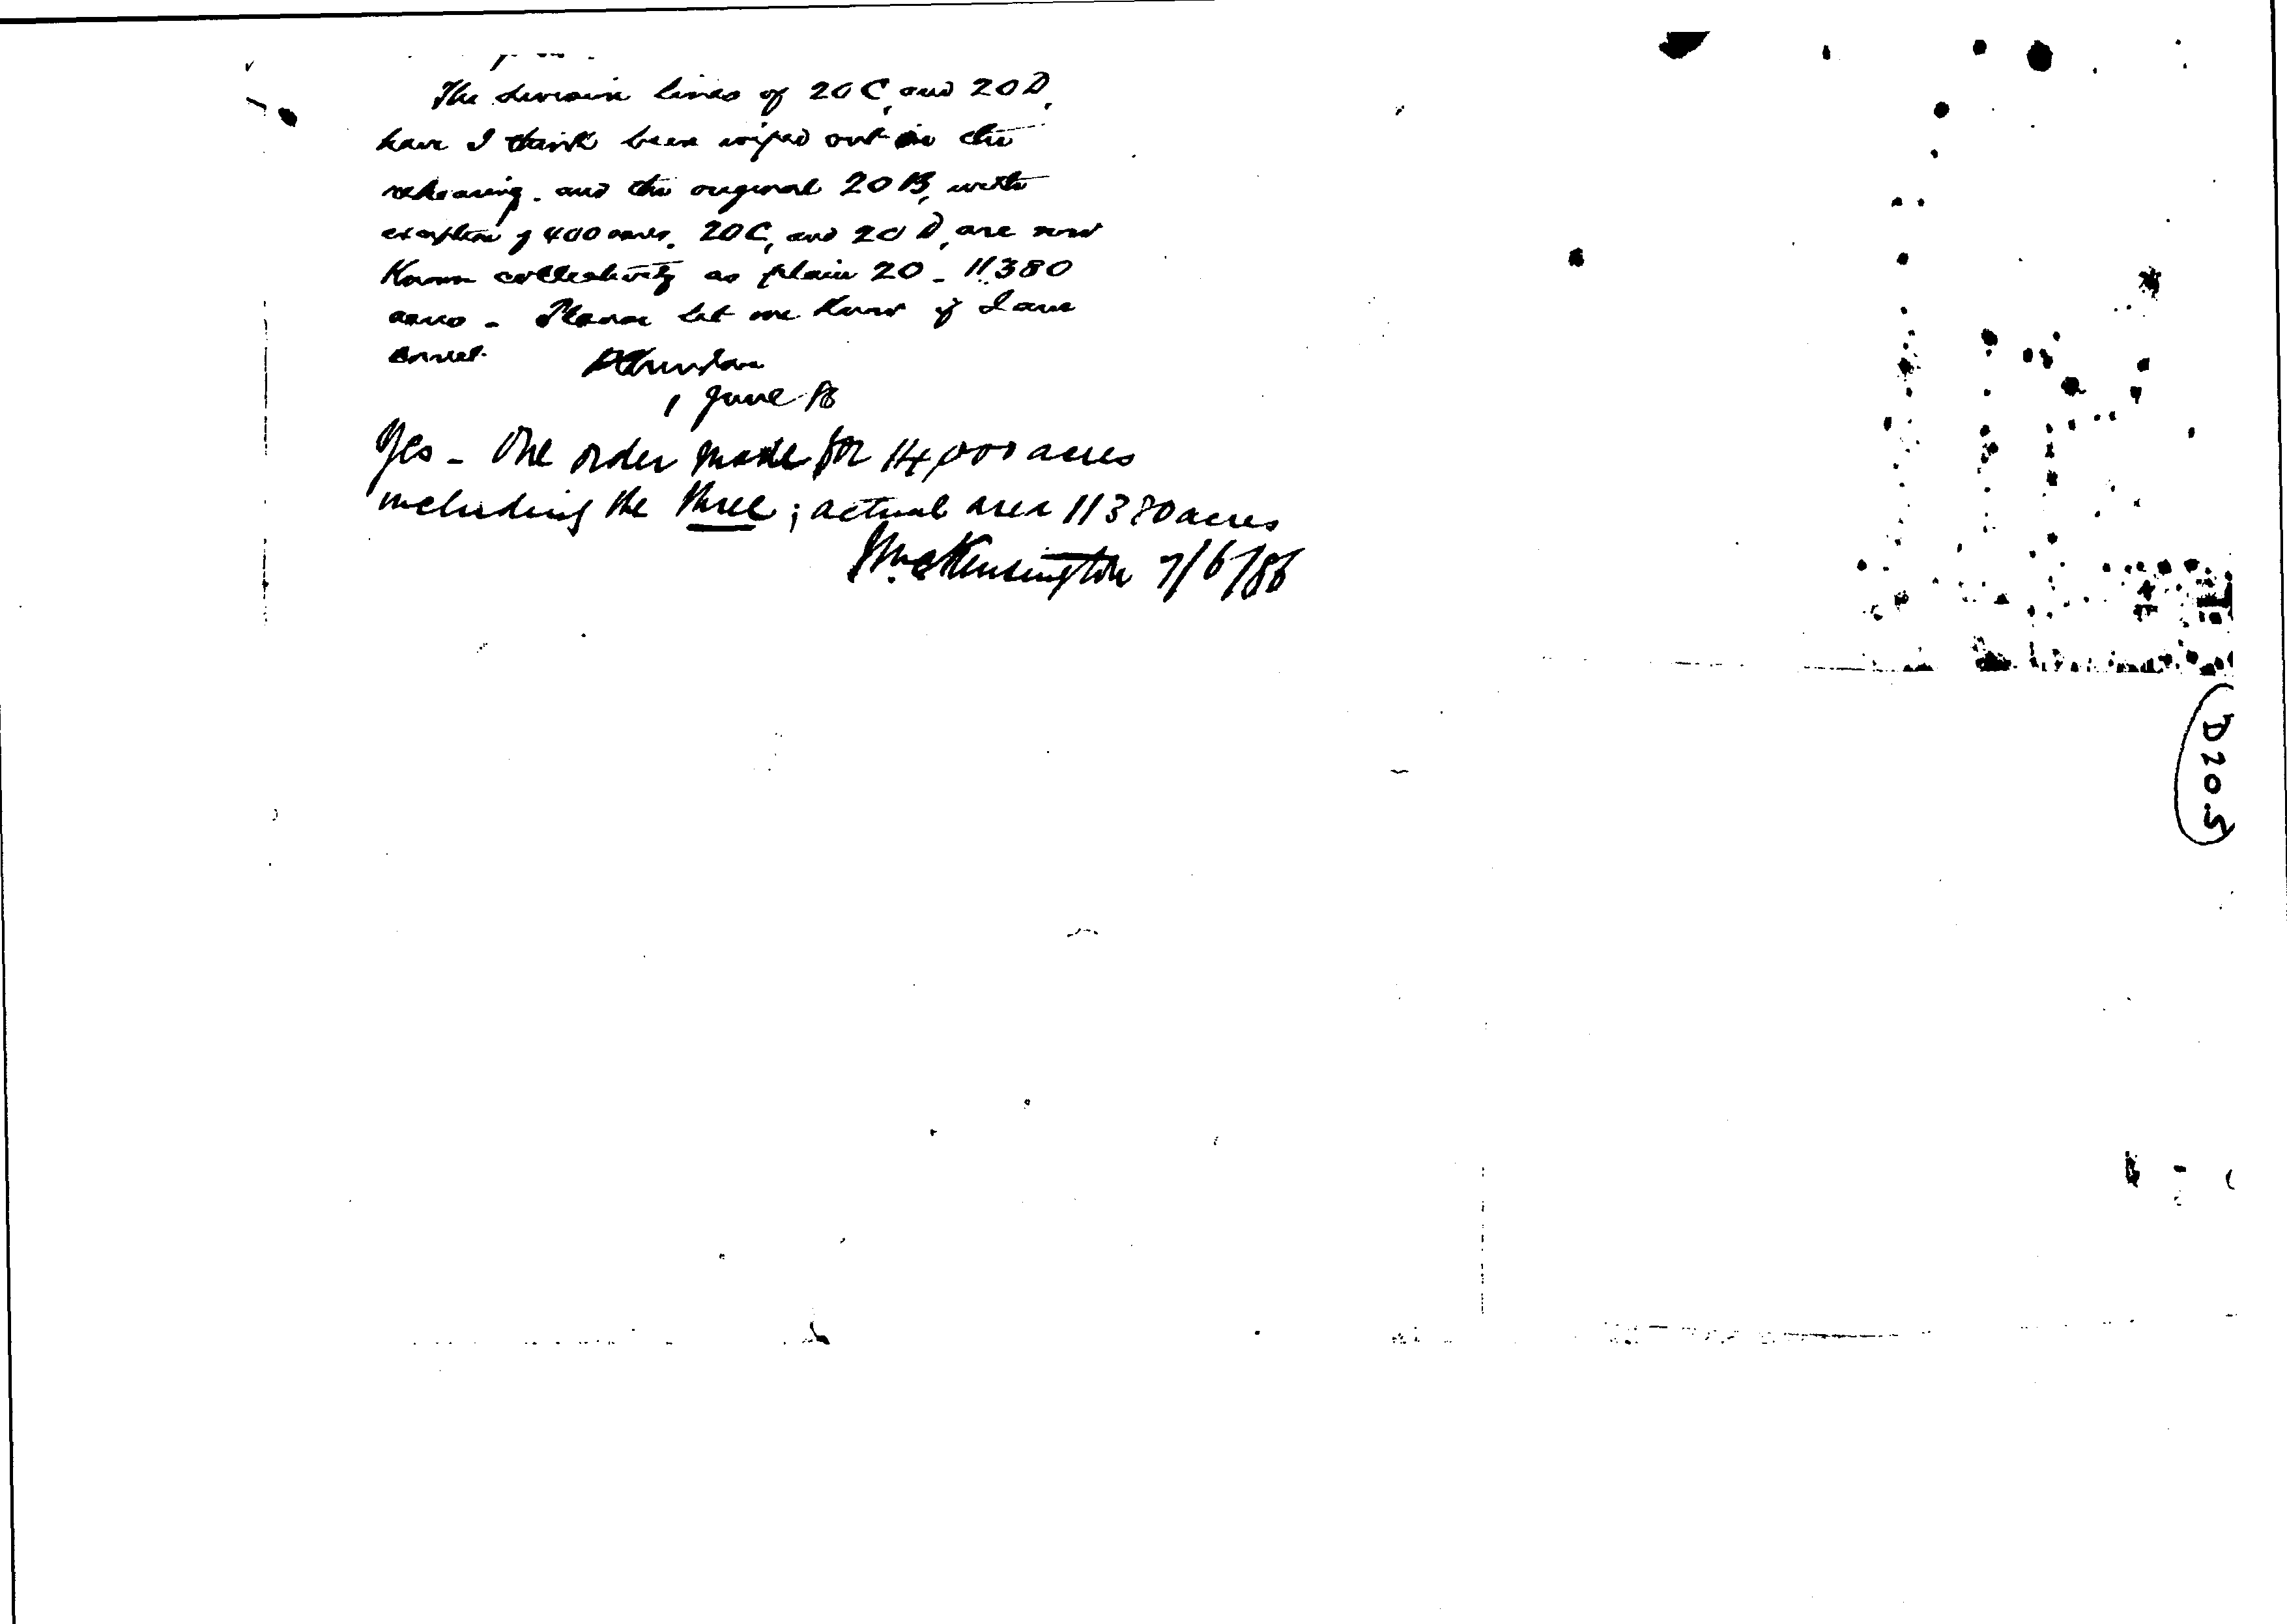 The division lines of 20C, and 20D,
have I think been wiped out in the
rehearing. and the original 20B, with
exception of 400 acres, 20C, and 20D, are now
Known collectively as plain 20 - 11380
acres - Please let me know if I am
correct.
1 June 86
Yes - One order made for 14,000 acres
including the three; actual area 11380 acres
McKensington 7/6/86
D20.5